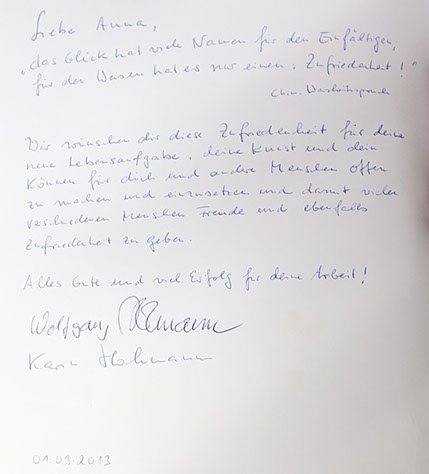 Liebe Anna,
"das Glück hat viele Namen für den Einfältigen,
für den Weisen hat es nur einen: Zufriedenheit!"
Chin. Weisheitsspruch
Wir wünschen dir diese Zufriedenheit für deine
neue Lebensaufgabe, deine Kunst und dein
Können für dich und andere Menschen offen
zu machen und einzusetzen und damit vielen
verschiedenen Menschen Freude und ebenfalls
Zufriedenheit zu geben.
Alles Gute und viel Erfolg für deine Arbeit!
Wolfgang
Karin Hohmann
01.09.2013